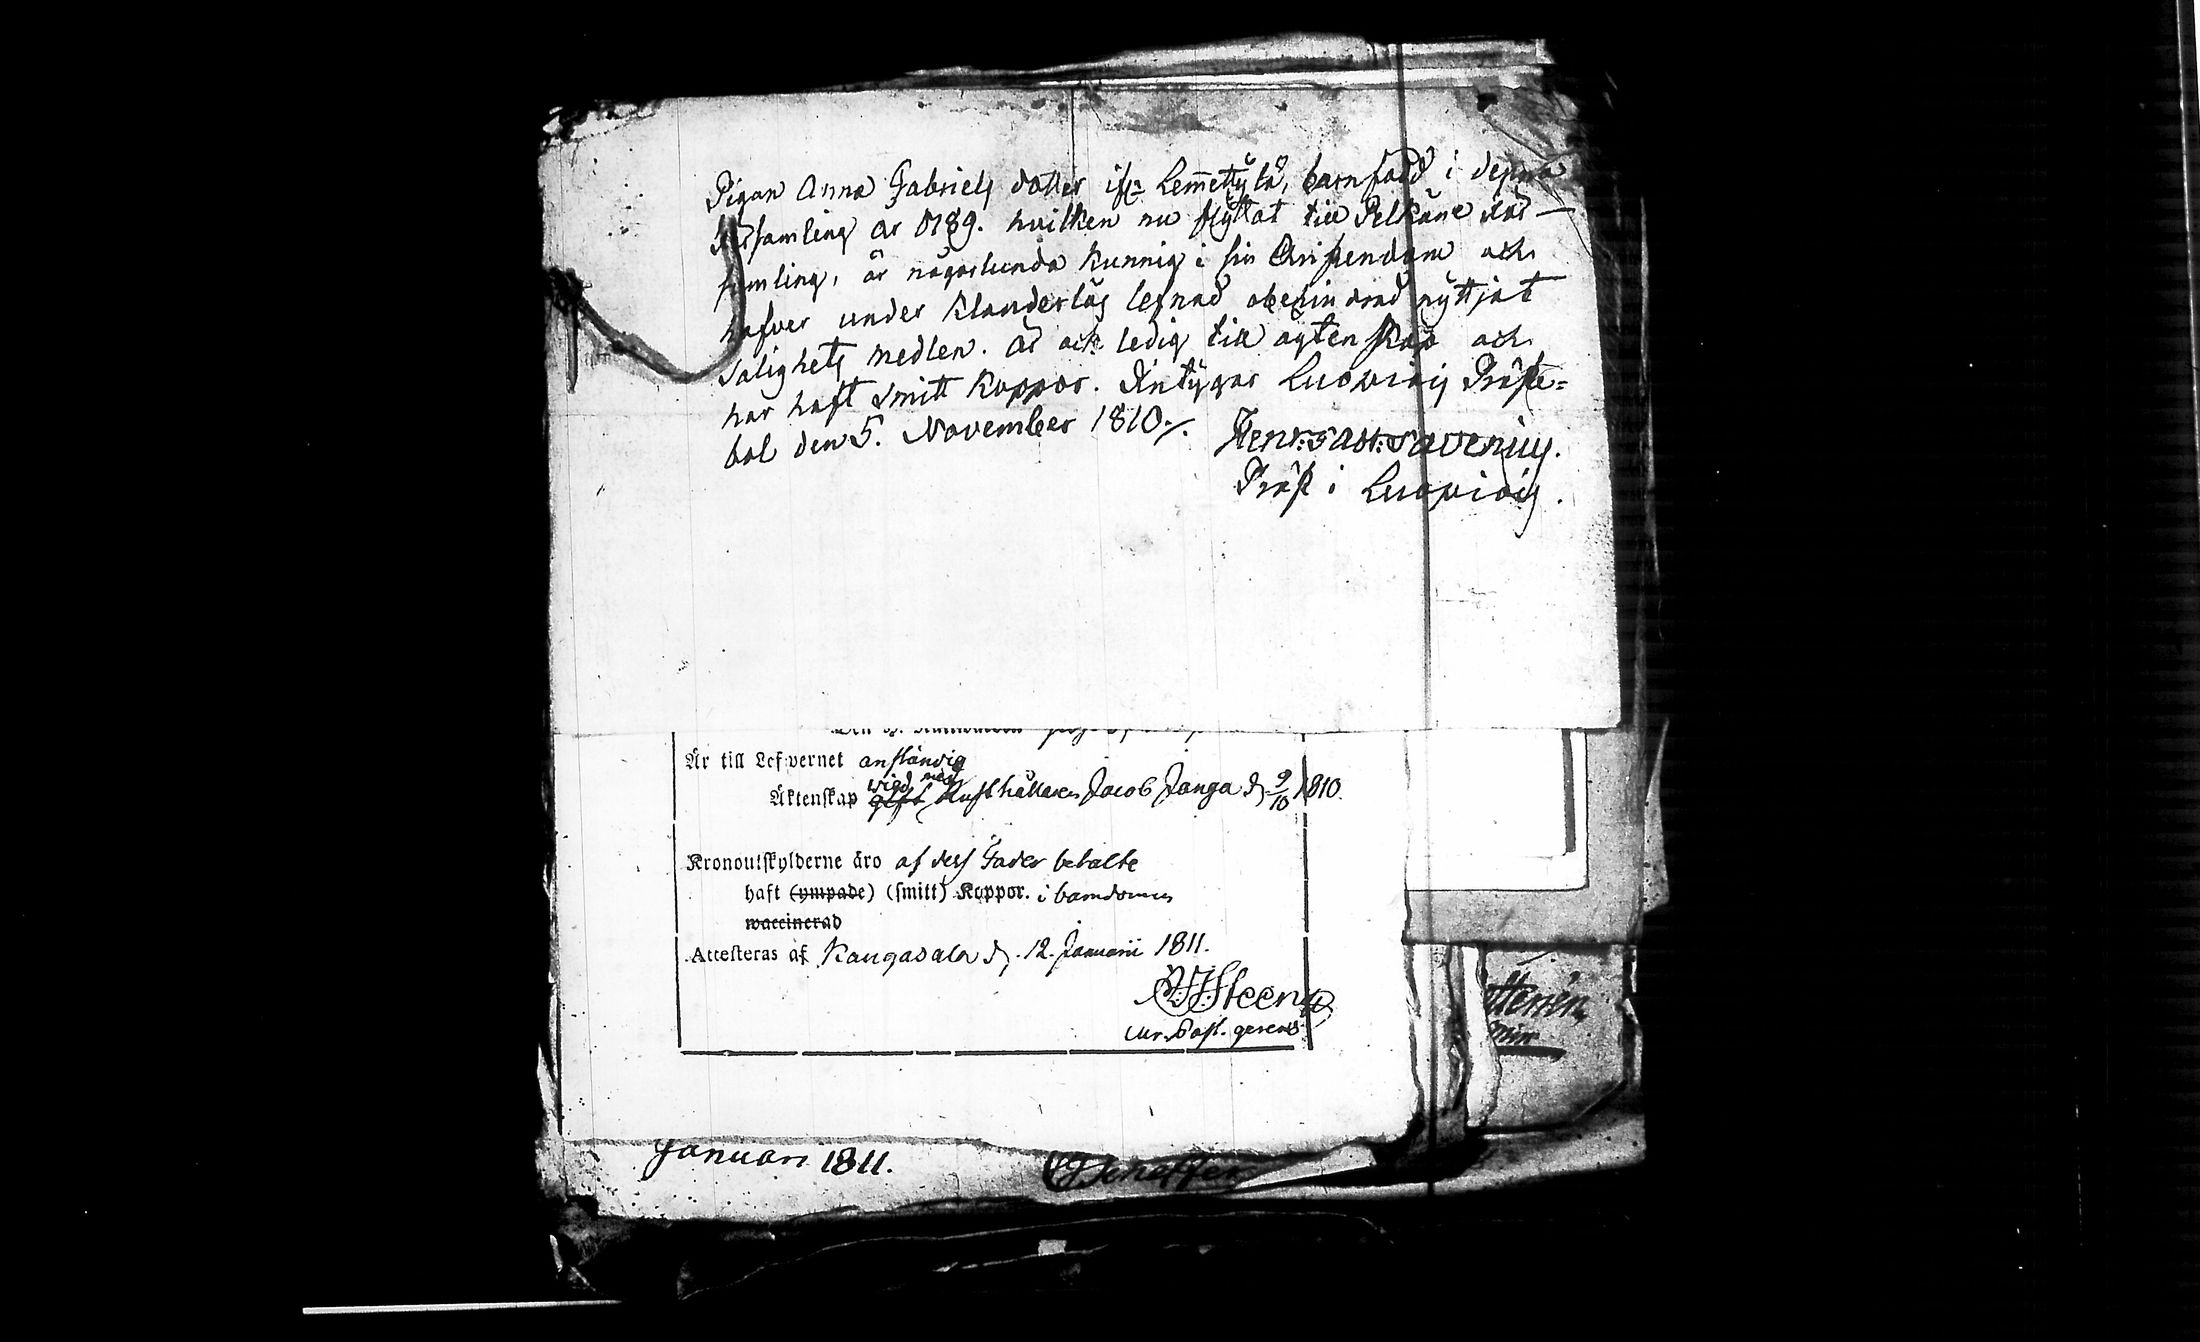 Pigan Anna Gabriels dotter ifr. Lemettylä, barnfödd i denna
Församling år 1789. hvilken nu flyttat till Pelkäne För-
samling, är någorlunda kunnig i sin Christendom och
hafver under klanderlös lefnad obehindrad nyttjat
Salighets medlen. är ock ledig till ägtenskap och
har haft smitt koppor. Intygar Luopiois Präste-
bol den 5. November 1810./.
Henr: G ad: Savenius.
Präst i Luopiois.
Är till Lefvernet anständig
wigd med
Äktenskap gift Rusthållaren Jacob Janga d. 9/10 1810.
Kronoutskylderne äro af dess Fader betalte
haft (ympade) (smitt) Koppor. i barndomen
waccinerad
Attesteras af Kangasala d. 12. Januarii 1811.
Steen
Vur. Past. gerens
Januari 1811.